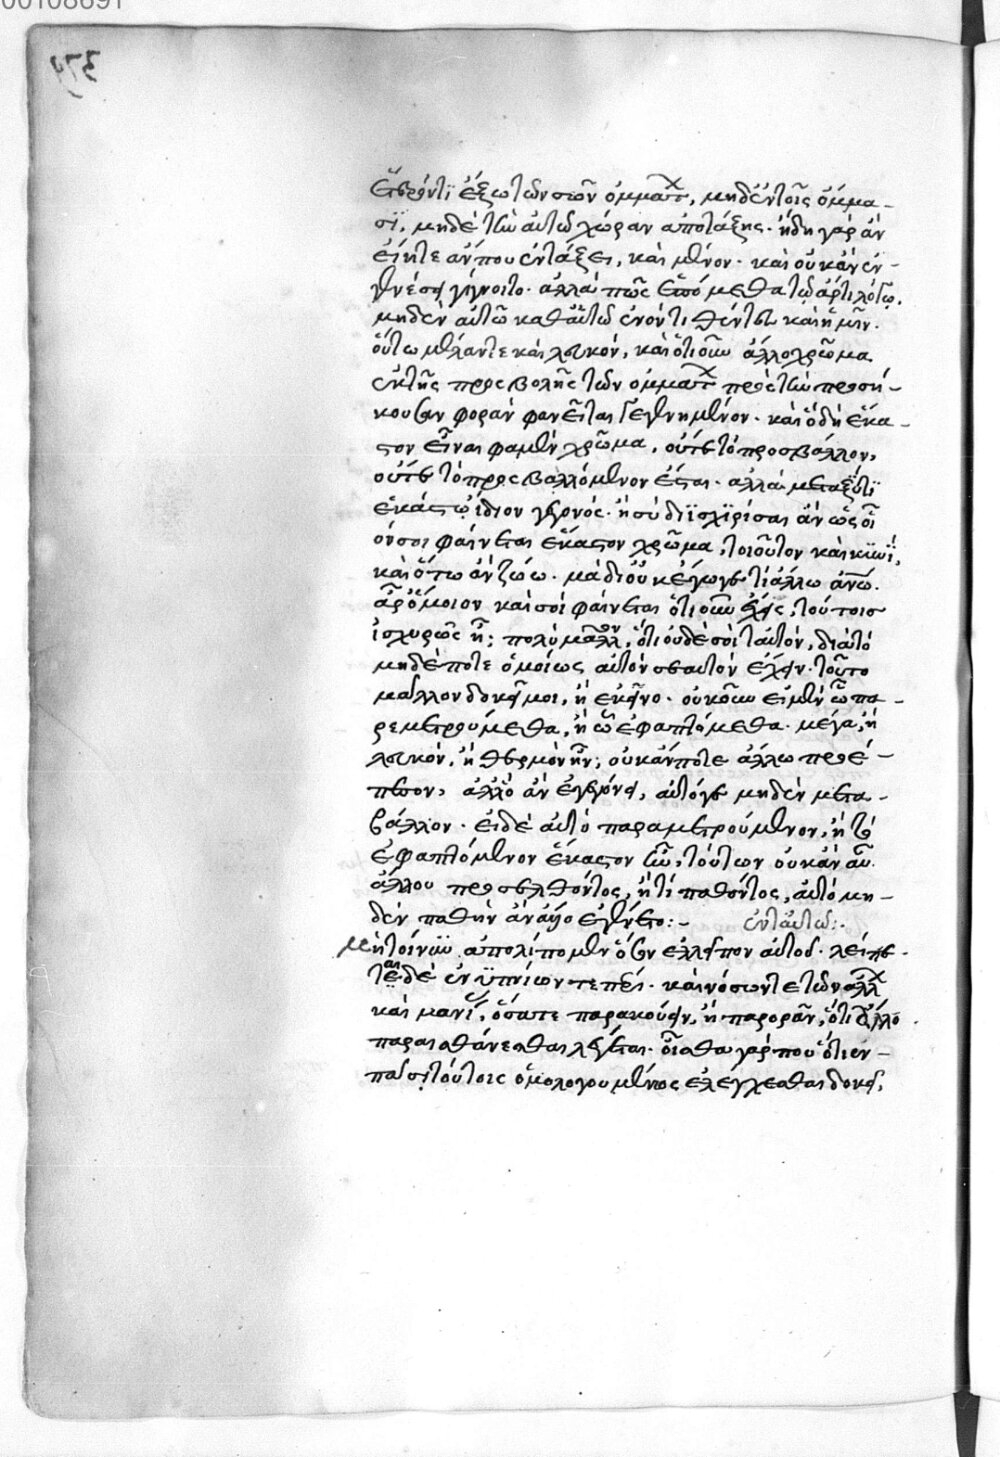 00108691
379
ἕτερόν τι ἔξω τῶν σῶν ὀμμάτ, μηδ' ἐν τοῖς ὄμμα-
σϊ, μηδὲ τὴν αὐτῶ χώραν ἀποτάξης· ἤδη γὰρ ἂν
εἴη τε ἄν που ἐν τάξει, καὶ μένον· καὶ οὐκ ἂν ἐν
γενέσει γίγνοιτο· ἀλλὰ πῶς ἑπόμεθα τῶ ἄρτι λόγω,
μηδὲν αὐτῶ καθ' αὑτὸ ἐν ὂν τιθέντες καὶ ἡμῖν·
οὕτω μέλαν τε καὶ λευκὸν, καὶ ὅτι οὖν ἄλλο χρῶμα
ἐκ τῆς προςβολῆς τῶν ὀμμάτ πρὸς τὴν προσή-
κουσαν φορὰν φανεῖται γεγενημένον· καὶ ὃ δὴ ἕκα-
στον εἶναι φαμὲν χρῶμα, οὔτε τὸ προσβάλλον,
οὔτε τὸ προςβαλλόμενον ἔσται· ἀλλὰ μεταξύ τϊ
ἑκάστω ἴδιον γεγονός· ἢ σὺ διϊσχϊρίσαι ἂν ὡς οἷ
ον σοι φαίνεται ἕκαστον χρῶμα, τοιοῦτον καὶ κυνΐ,
καὶ ὅτω ἂν ζώω· μὰ δι' οὐκ ἔγωγε· τί ἄλλω ἀνω·
ἆρ' ὅμοιον καὶ σοὶ φαίνεται ὅτι οὖν ἔχεις, τοῦτο ισ
ἰσχυρῶς ἢ; πολὺ μᾶλλον, ὅτι οὐδὲ σοὶ ταὐτὸν, διὰ τὸ
μηδέποτε ὁμοίως αὐτὸν σεαυτὸν ἔχειν· τοῦτο
μᾶλλον δοκεῖ μοι, ἢ ἐκεῖνο· οὐκοῦν εἰ μὲν ὧ πα-
ρεμετρούμεθα, ἢ οὗ ἐφαπτόμεθα· μέγα, ἢ
λευκὸν, ἢ θερμὸν ἦν, οὐκ ἄν ποτε ἄλλω προσ-
πεσὸν, ἄλλο ἂν ἐγεγόνει, αὐτό γε μηδὲν μετα-
βάλλον· εἰ δὲ αὐτὸ παραμετρούμενον, ἢ τὸ
ἐφαπτόμενον ἕκαστον ἦν, τούτων οὐκ ἂν αὖ
ἄλλου προσελθόντος, ἤ τι παθόντος, αὐτὸ μη-
δὲν παθὴν ἂν ἄλλο ἐγένετο:- ἐν ταὐτῶ:
μήτοίνυν ἀπολίπομεν ὅσον ἐλλεῖπον αὐτοῦ· λείπε-
ται δὲ ἐνϋπνίων τε πέρι· καὶ νόσων τε τῶν ἄλλ
καὶ μανί, ὅσα τε παρακούειν, ἢ παρορᾶν, ἤ τι ἄλλο
παραισθάνεσθαι λέγεται· οἶσθα γάρ που ὅτι ἐν
πᾶσι τούτοις ὁμολογουμένως ἐλέγχεσθαι δοκεῖ,